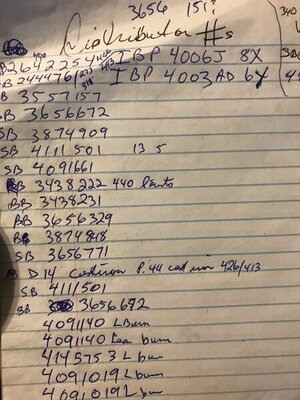 3656 151?
Distributor #s
3642254 IBP 4006J 8X
SB 2444761 IBP 4003AD 6X
B 3557157
SB 3656672
SB 3874909
SB 4111501 13 5
SB 4091661
BB 3438222 440
BB 3438231
BB 3656329
BB 3874848
SB 3656771
BB D14 P.44 426/413
SB 4111501
SB 3656672
4091140 L Burn
4091140 burn
4145753 L burn
4091019 L burn
4091019 L burn